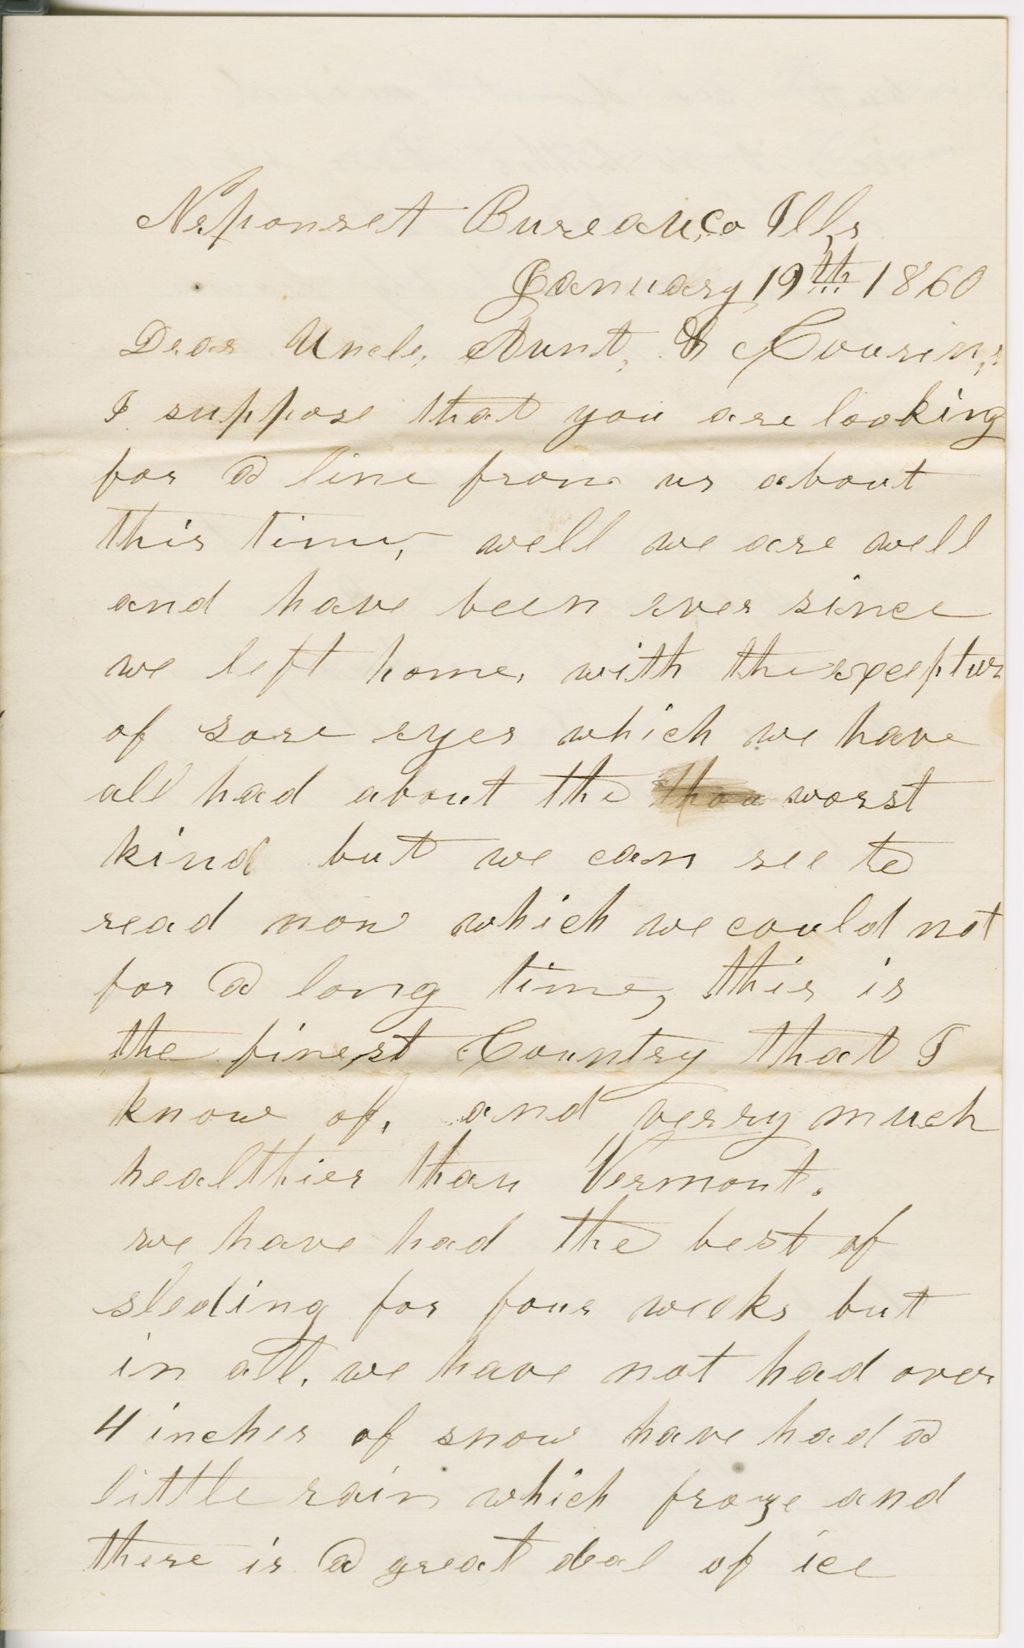 Neponset Bureau, Co Ills
January, 19th 1860
Dear Uncle, Aunt, & Cousins,
I suppose that you are looking
for a line from us about
this time, well we are well
and have been ever since
we left home, with the
of sore eyes which we have
all had about the worst
kind but we can see to
read now which we could not
for a long time, this is
the finest Country that I
know of, and verry much
healthier than Vermont.
we have had the best of
sleding for four weeks but
in all, we have not had over
4 inches of snow have had a
little rain which froze and
there is a great deal of ice